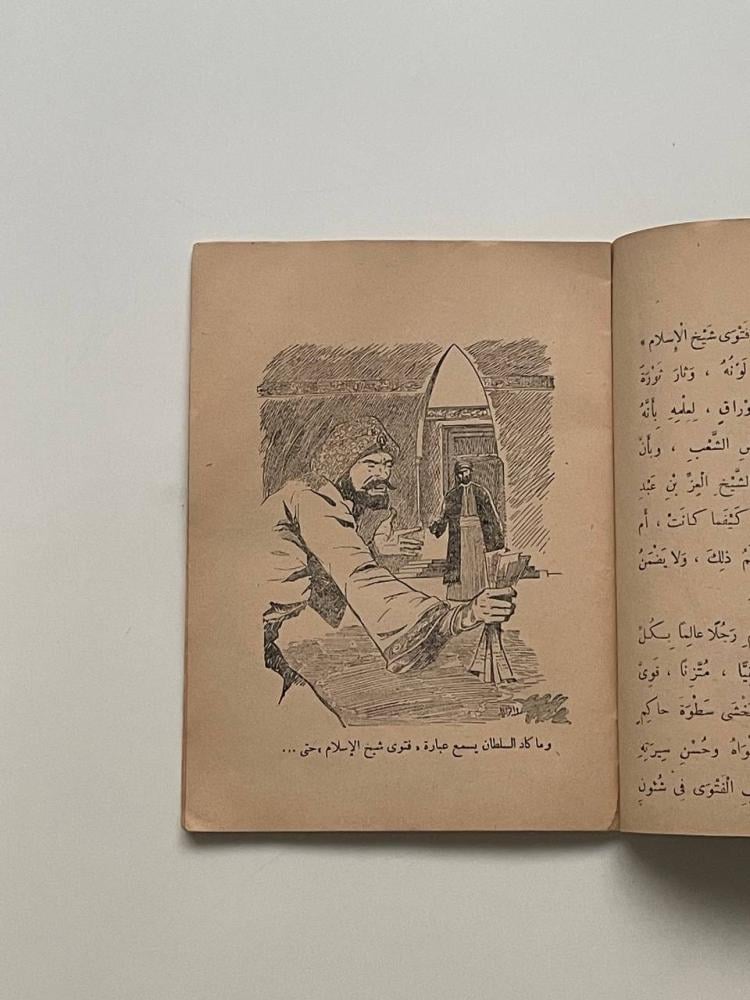 وما كاد السلطان يسمع عبارة « فتوى شيخ الإسلام » حتى ...
فَتْوَى شَيْخِ الْإِسْلَامِ »
لَوْنُهُ ، وَثَارَ ثَوْرَةً
لِعِلْمِهِ بِأَنَّهُ
الشَّعْبِ ، وَبِأَنَّ
الشَّيْخِ الْعِزِّ بْنِ عَبْدِ
كَيْفَمَا كَانَتْ ، أَمْ
ذٰلِكَ ، وَلَا يَضْمَنُ
رَجُلًا عَالِمًا بِكُلِّ
، مُتَّزِنًا ، قَوِىَّ
سَطْوَةَ حَاكِمٍ
وَحُسْنِ سِيرَتِهِ
الْفَتْوَى فِى شُئُونِ